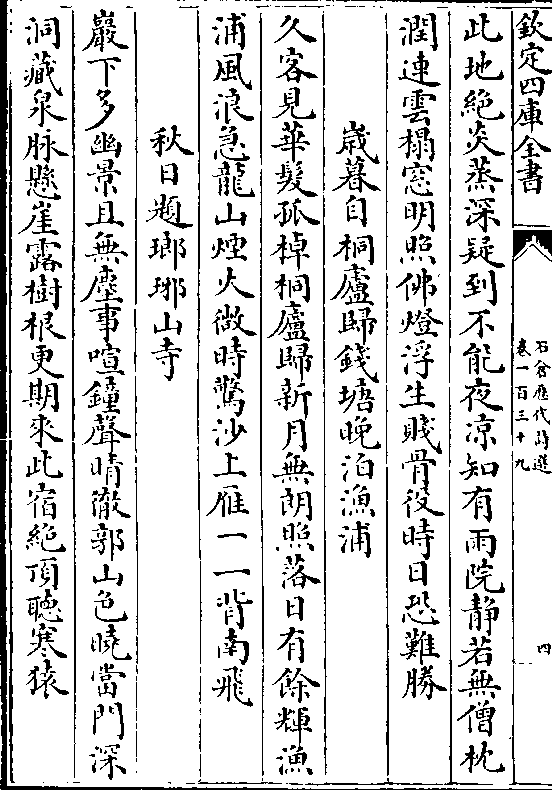 欽定四庫全書
石倉歷代詩選
卷一百三十九
四
此地絶炎蒸深疑到不能夜凉知有雨院静若無僧枕
潤連雲榻窓明照佛燈浮生賤骨役時日恐難勝
歳暮自桐廬歸錢塘晚泊漁浦
久客見華髮孤棹桐廬歸新月無朗照落日有餘輝漁
浦風浪急龍山煙火微時驚沙上雁一一背南飛
秋日題瑯琊山寺
巖下多幽景且無塵事喧鐘聲晴徹郭山色曉當門深
洞藏泉脉懸崖露樹根更期來此宿絶頂聴寒猿